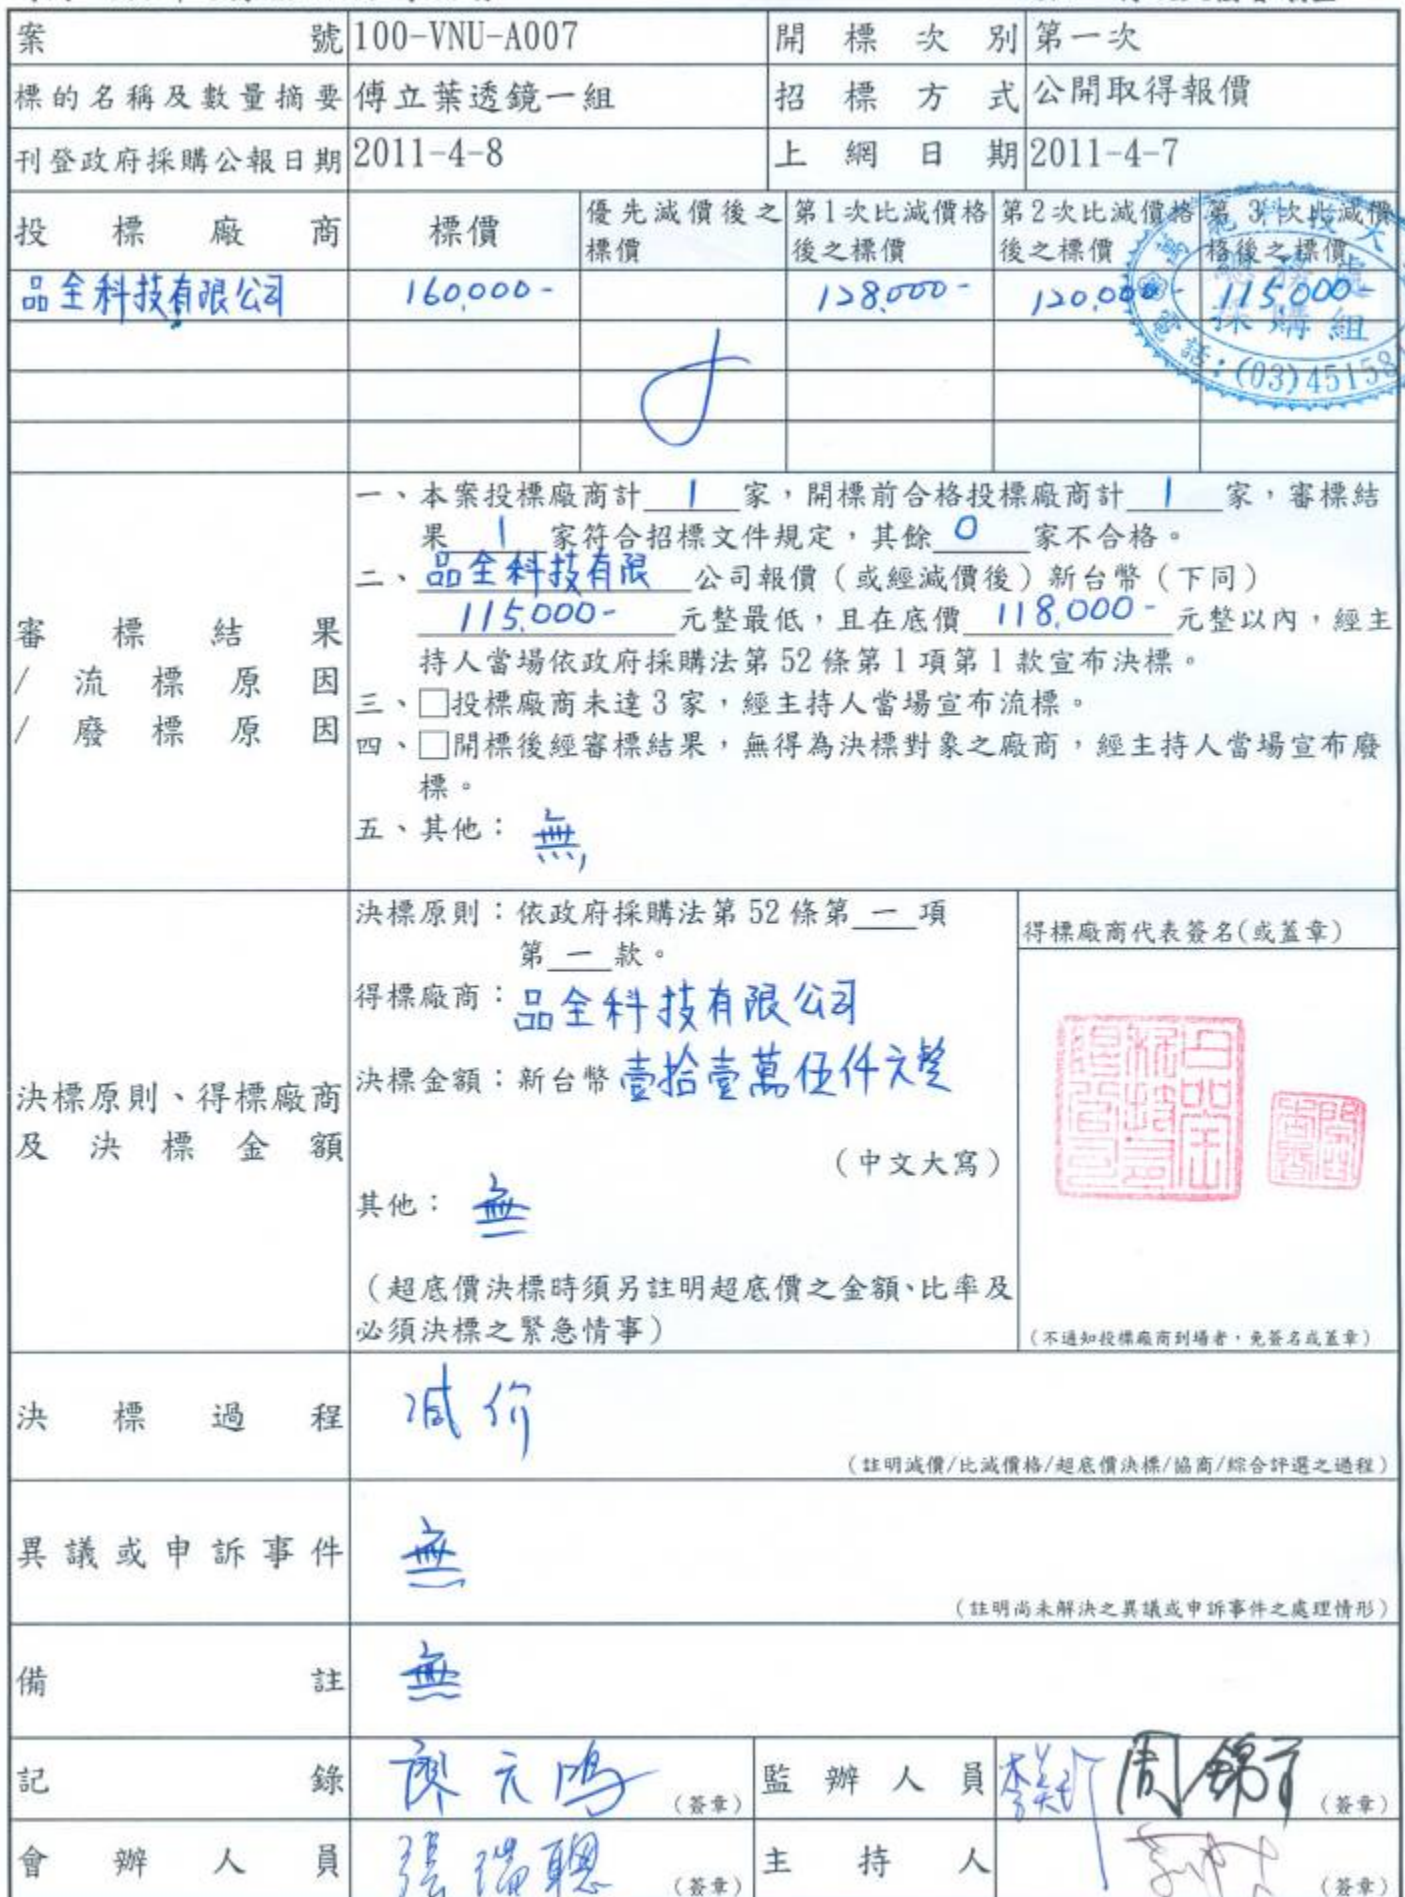 案號 100-VNU-A007 開標次別 第一次
標的名稱及數量摘要 傅立葉透鏡一組 招標方式 公開取得報價
刊登政府採購公報日期 2011-4-8 上網日期 2011-4-7
投標廠商 標價 優先減價後之標價 第1次比減價格後之標價 第2次比減價格後之標價 第3次比減價格後之標價
品全科技有限公司 160,000- 128,000- 120,000- 115,000-
總務處
採購組
電話:(03)45158
審標結果
/流標原因
/廢標原因
一、本案投標廠商計 1 家，開標前合格投標廠商計 1 家，審標結
果 1 家符合招標文件規定，其餘 0 家不合格。
二、品全科技有限 公司報價（或經減價後）新台幣（下同）
115,000- 元整最低，且在底價 118,000- 元整以內，經主
持人當場依政府採購法第 52 條第 1 項第 1 款宣布決標。
三、□投標廠商未達 3 家，經主持人當場宣布流標。
四、□開標後經審標結果，無得為決標對象之廠商，經主持人當場宣布廢
標。
五、其他：無
決標原則、得標廠商
及決標金額
決標原則：依政府採購法第 52 條第 一 項
第 一 款。
得標廠商：品全科技有限公司
決標金額：新台幣 壹拾壹萬伍仟元整
（中文大寫）
其他：無
（超底價決標時須另註明超底價之金額、比率及
必須決標之緊急情事）
得標廠商代表簽名(或蓋章)
（不通知投標廠商到場者，免簽名或蓋章）
決標過程 減价
（註明減價/比減價格/超底價決標/協商/綜合評選之過程）
異議或申訴事件 無
（註明尚未解決之異議或申訴事件之處理情形）
備註 無
記錄 廖元鴻 （簽章） 監辦人員 周錦 （簽章）
會辦人員 張瑞聰 （簽章） 主持人 （簽章）